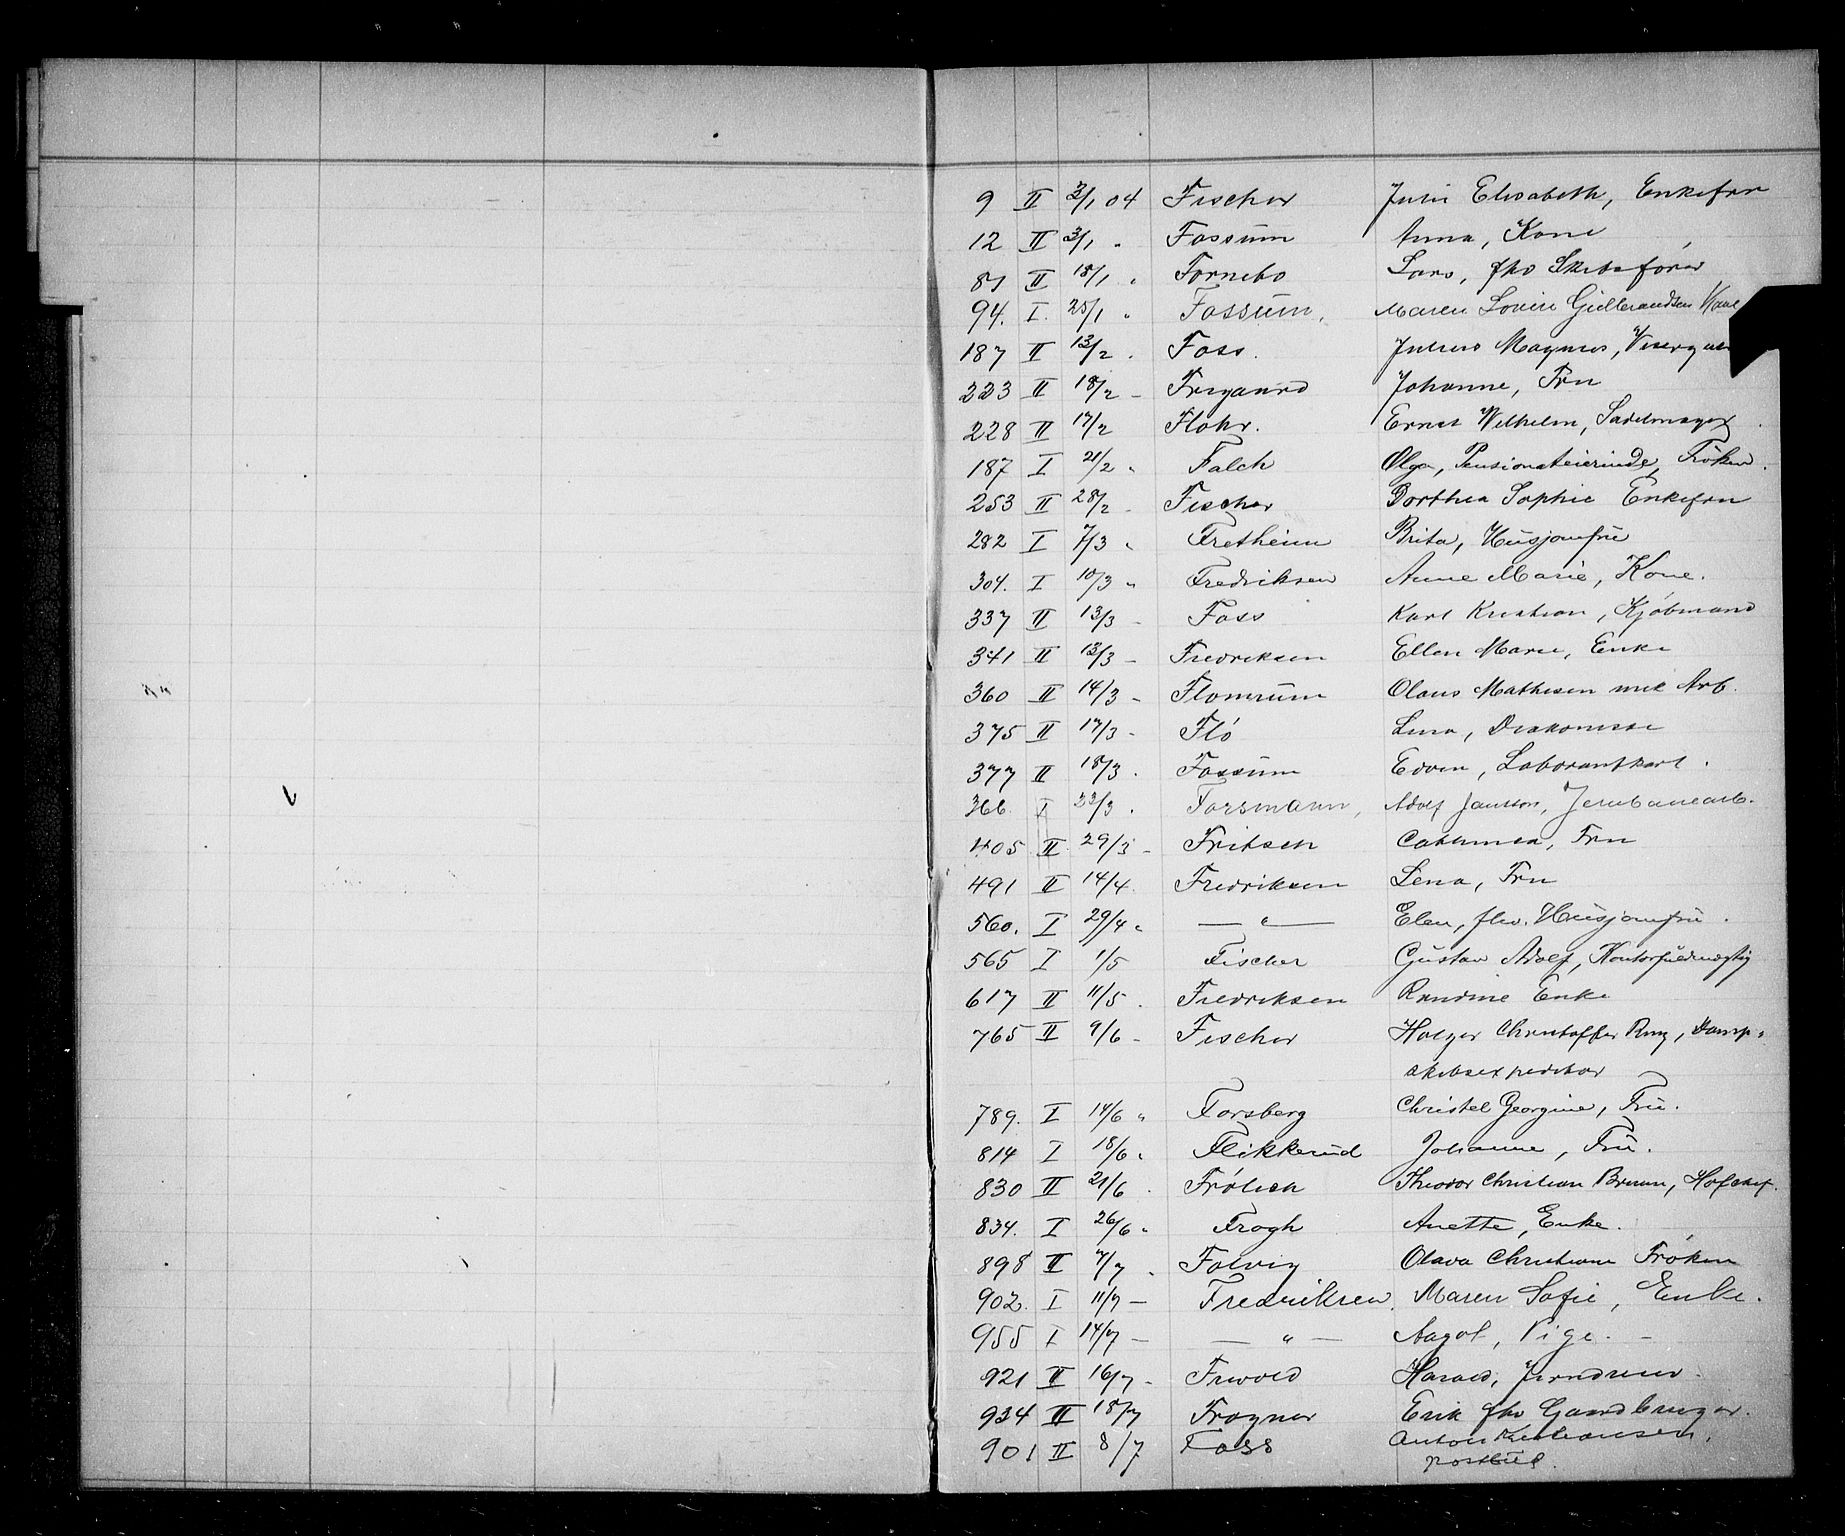 9 II 2/1 04 Fischer Julie Elisabeth, Enkefru
12 II 3/1 " Fossum Anna, Kone
81 II 18/1 " Fornebo Lars, fhv Skibsfører
94. I. 25/1 " Fossum, Maren Lovise Gulbrandsen
187 II 13/2 . Foss. Julius Magnus,
223 II 18/2 - Frygaard Johanne, Fru
228 II 17/2 Flohr. Ernst Wilhelm, Sadelmager
187 I 21/2 " Falch Olga, Pensionateierinde, Frøken.
253 II 28/2 - Fischer Dorthea Sophie Enkefru
282 I 7/3 " Fretheim Brita, Husjomfru
304. I 10/3 " Fredriksen Anne Marie, Kone.
337 II 13/3 - Foss Karl Kristian, Kjøbmand
341 II 13/3 - Fredriksen Ellen Marie, Enke
360 II 14/3 - Flomrum Olaus Mathisen Arb.
375 II 17/3 - Flö Lina, Diakonisse
377 II 18/3 . Fossum Edvin, Laborantkarl.
366 I 23/3 . Forsmann, Adolf Jansson, Jernbanearb.
405 II 29/3 - Fritsch Cathinca, Fru
491 II 14/4 Fredriksen Lena, Fru
560. I 29/4 " — " — Elen, fhv. Husjomfru.
565 I 1/5 Fischer Gustav Adolf, Kontorfuldmægtig
617 II 11/5 . Fredriksen Randine Enke
765 II 9/6 - Fischer Holger Christoffer Ring, Damp-
skibsexpeditør
789. I 14/6 " Forsberg Christel Georgine, Fru.
814 I 18/6 " Flikkerud Johanne, Fru.
830 II 21/6 . Frölich Theodor Christian Bruun, Hofchef.
834. I 26/6 " Frogh Anette, Enke.
898 II 7/7 . Folvig Olava Christiane Frøken
902. I 11/7 — Fredriksen. Maren Sofie, Enke.
955 I 14/7 — — " — Aagot, Pige. —
921 II 16/7 - Harald,
934 II 18/7 Frogner Erik fhv Gaardbruger.
901 II 8/7 Foss Anton Kristiansen,
postbud.